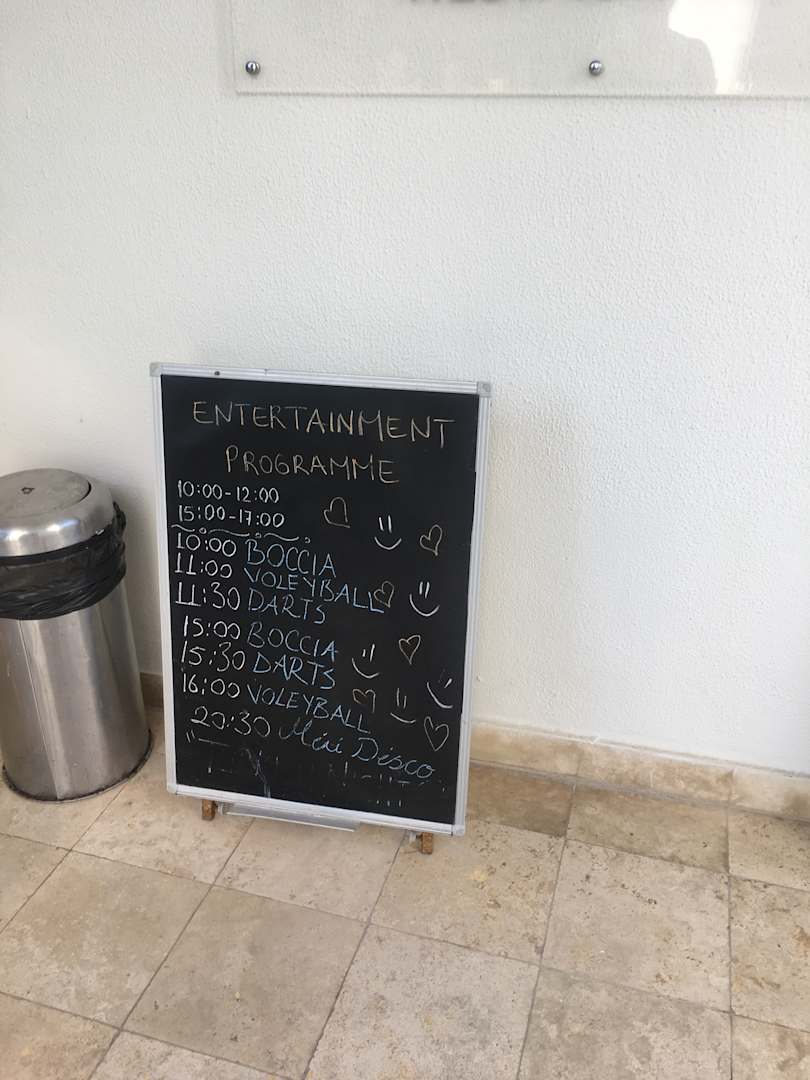 ENTERTAINMENT
PROGRAMME
10:00-12:00
15:00-17:00
10:00 BOCCIA
11:00 VOLEYBALL
11:30 DARTS
15:00 BOCCIA
15:30 DARTS
16:00 VOLEYBALL
20:30 Mini Disco